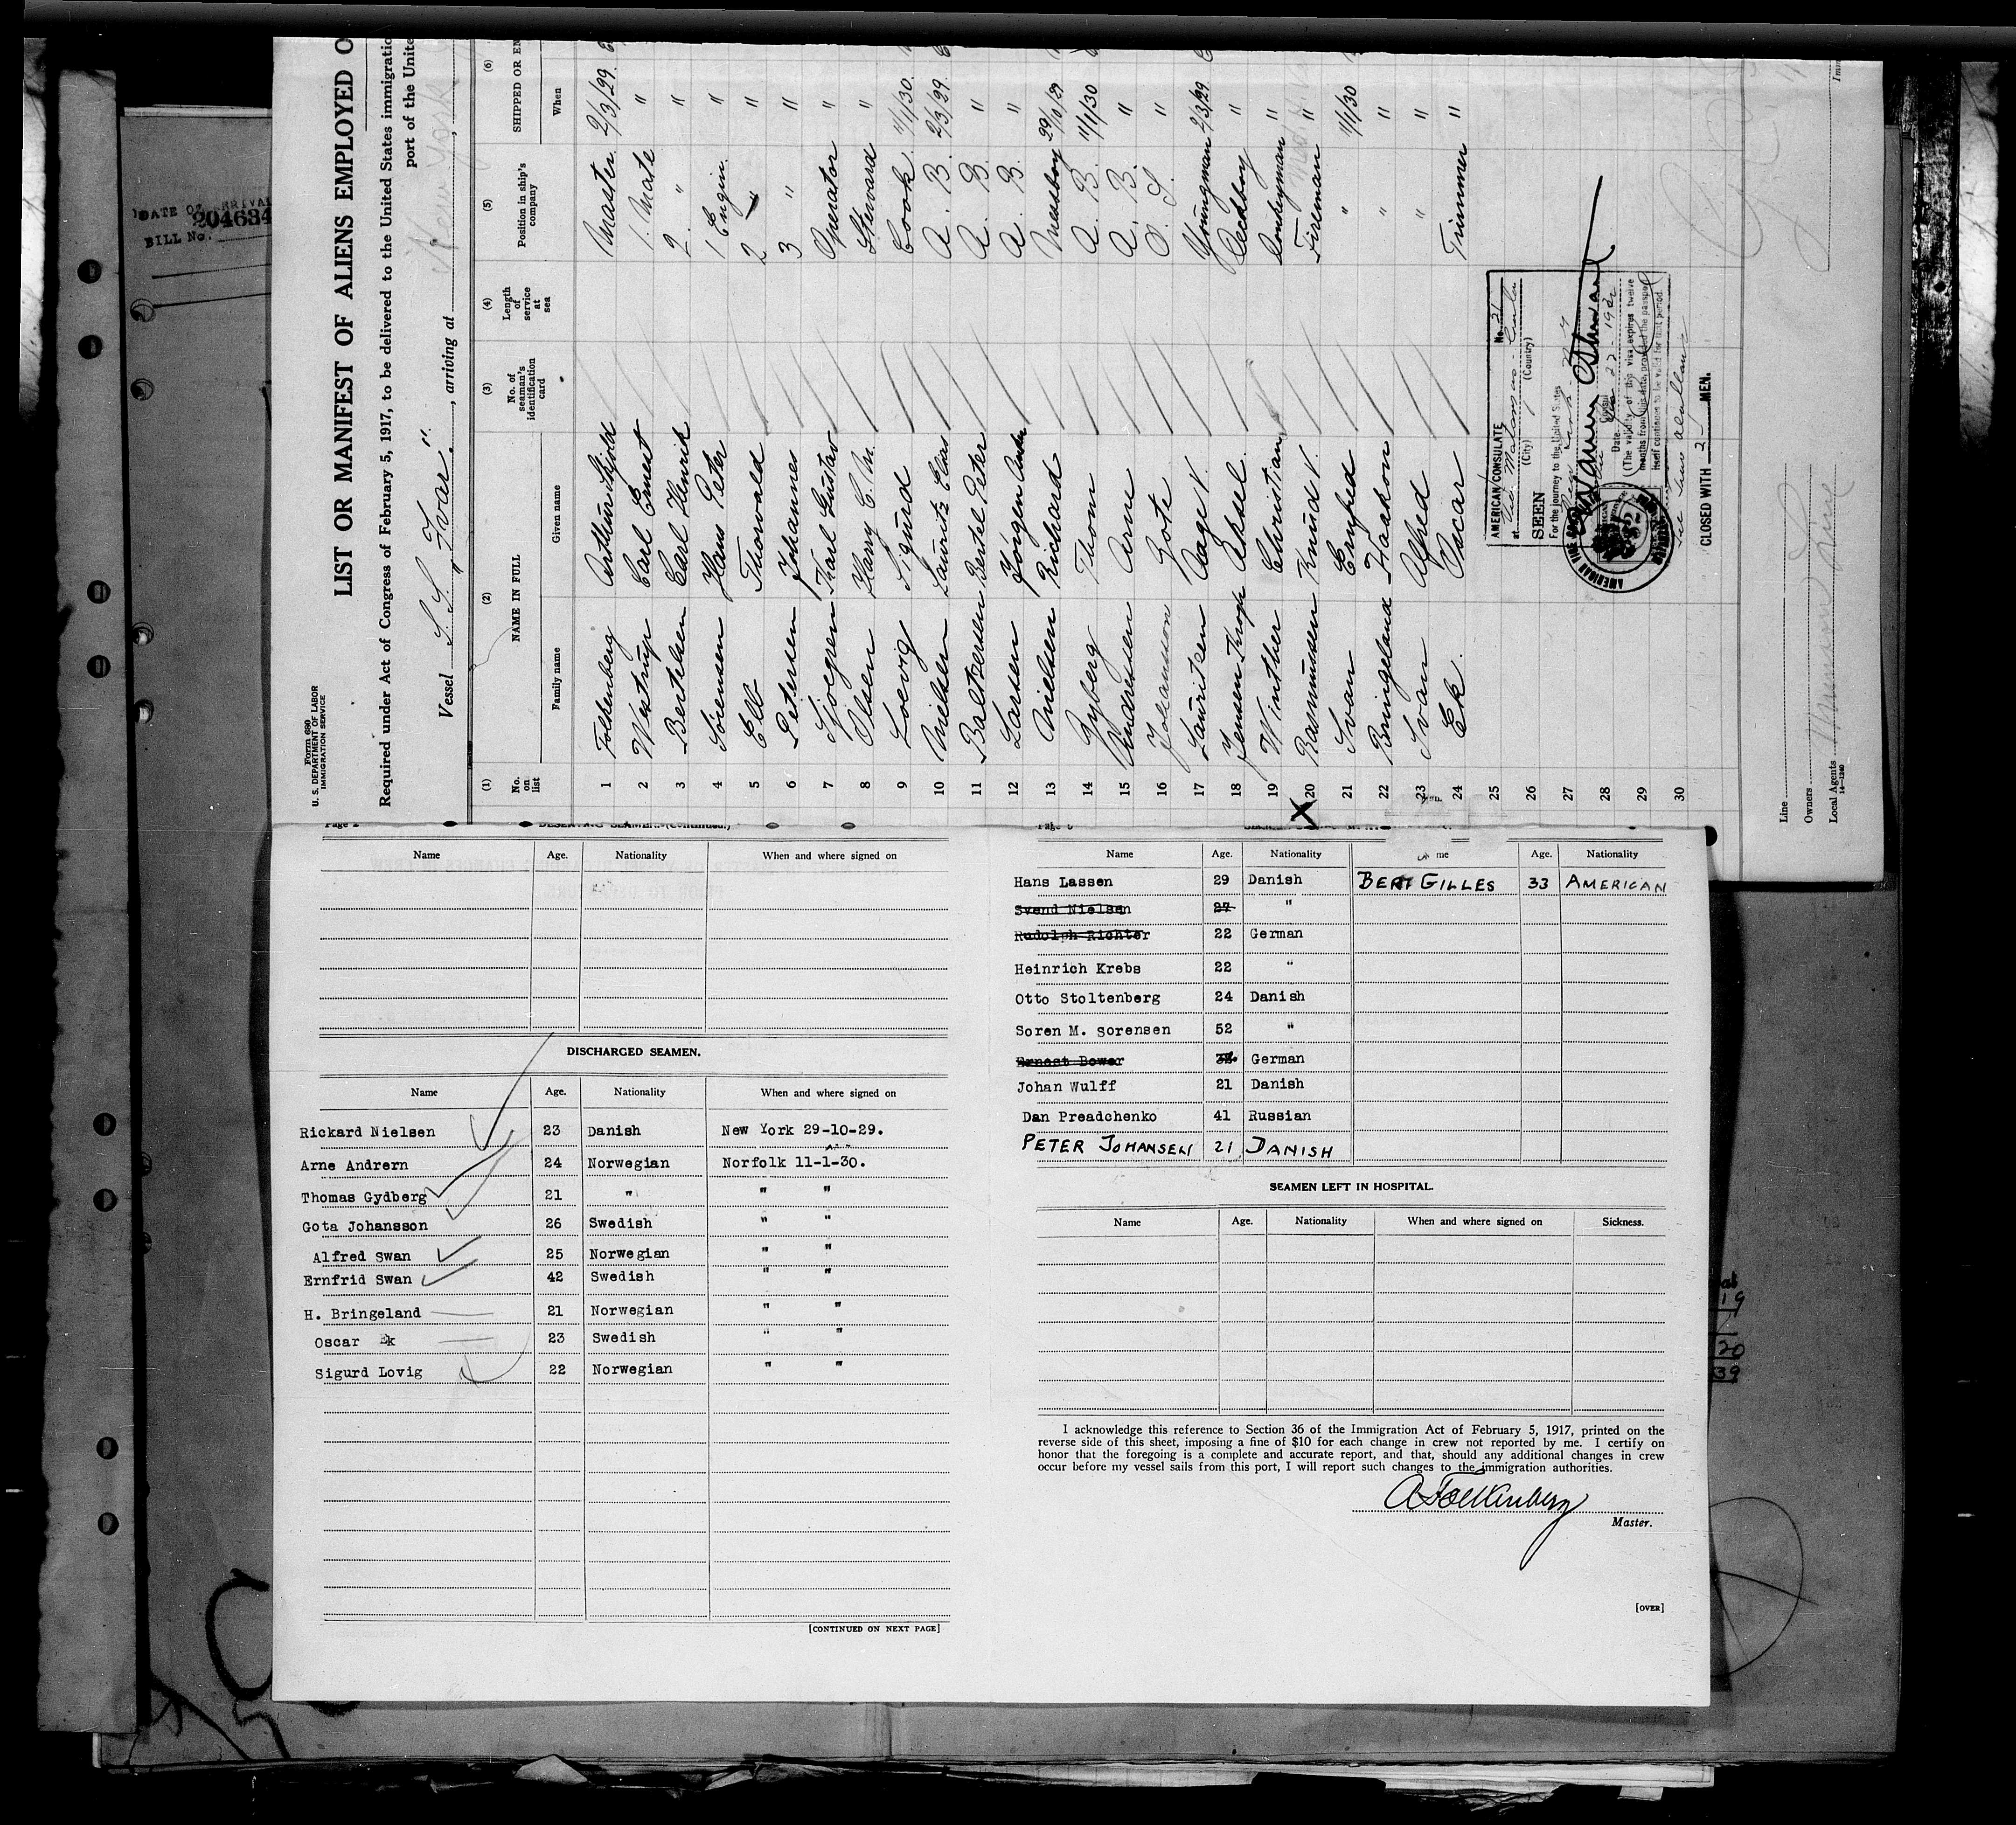 DATE OF ARRIVAL
204634
BILL No.
Form 690
U. S. DEPARTMENT OF LABOR
IMMIGRATION SERVICE
LIST OR MANIFEST OF ALIENS EMPLOYED O
Required under Act of Congress of February 5, 1917, to be delivered to the United States immigratio
port of the Unite
Vessel S.S. "Ivar". , arriving at New York ,
(1) (2) (3) (4) (5) (6)
No. on list NAME IN FULL No. of seaman's identification card Length of service at sea Position in ship's company SHIPPED OR EN
Family name Given name When
1 Folkenberg Arthur Skjold Master 2/3/29.
2 Westrup Carl Ernest 1. Mate "
3 Bertelsen Carl Henrik 2. " "
4 Sörensen Hans Peter 1 Engin. "
5 Elb Thorvald 2 " "
6 Petersen Johannes 3 " "
7 Sjoegren Karl Gustav Operator "
8 Olsen Harry C. M. Steward "
9 Loevig Sigurd Cook 11/1/30.
10 Nielsen Lauritz Elias A. B. 2/3/29.
11 Baltzersen Bertel Peter A. B. "
12 Larsen Jörgen A. B. "
13 Nielsen Richard Messboy 29/10/29
14 Gyberg Thom A. B. 11/1/30
15 Andressen Arne A. B. "
16 Johansson Gote O. S. "
17 Lauritsen Aage V. Youngman 2/3/29.
18 Jensen Krogh Aksel Deckboy "
19 Winther Christian Donkeyman "
20 Rasmussen Knud V. Fireman "
21 Svan Ernfred " 11/1/30
22 Bringeland Haakon " "
23 Svan Alfred " "
24 Ek Oscar Trimmer "
25
26
27
28
29
30
AMERICAN CONSULATE No. 21
at (City) (Country)
SEEN
For the journey to the United States
Consul
Date
(The validity of this visa expires twelve
months from this date, provided the passport
itself continues to be valid for that period.
CLOSED WITH 2 MEN.
Line
Owners
Local Agents
14—1240
DESERTING SEAMEN.—(Continued.)
Name Age. Nationality When and where signed on
DISCHARGED SEAMEN.
Name Age. Nationality When and where signed on
Rickard Nielsen 23 Danish New York 29-10-29.
Arne Andrern 24 Norwegian Norfolk 11-1-30.
Thomas Gydberg 21 " " "
Gota Johansson 26 Swedish " "
Alfred Swan 25 Norwegian " "
Ernfrid Swan 42 Swedish " "
H. Bringeland 21 Norwegian " "
Oscar Ek 23 Swedish " "
Sigurd Lovig 22 Norwegian " "
[CONTINUED ON NEXT PAGE]
Name Age. Nationality me Age. Nationality
Hans Lassen 29 Danish BERT GILLES 33 AMERICAN
Svend Nielsen 27 "
Rudolph Richter 22 German
Heinrich Krebs 22 "
Otto Stoltenberg 24 Danish
Soren M. Sorensen 52 "
Ernest Bower German
Johan Wulff 21 Danish
Dan Preadchenko 41 Russian
PETER JOHANSEN 21 DANISH
SEAMEN LEFT IN HOSPITAL.
Name Age. Nationality When and where signed on Sickness.
I acknowledge this reference to Section 36 of the Immigration Act of February 5, 1917, printed on the
reverse side of this sheet, imposing a fine of $10 for each change in crew not reported by me. I certify on
honor that the foregoing is a complete and accurate report, and that, should any additional changes in crew
occur before my vessel sails from this port, I will report such changes to the immigration authorities.
A Folkenberg
Master.
[OVER]
19
20
39